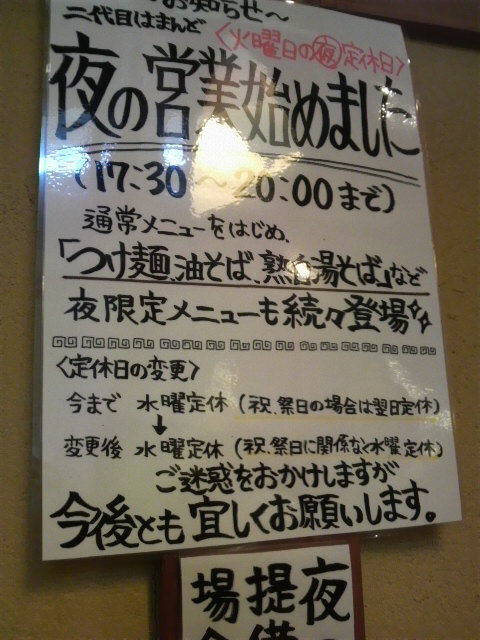 お知らせ～
二代目はまんど
〈火曜日の夜定休日〉
夜の営業始めました
(17:30～20:00まで)
通常メニューをはじめ、
「つけ麺、油そば、熟白湯そば」など
夜限定メニューも続々登場
〈定休日の変更〉
今まで 水曜定休(祝、祭日の場合は翌日定休)
↓
変更後 水曜定休(祝、祭日に関係なく水曜定休)
ご迷惑をおかけしますが
今後とも宜しくお願いします。
夜
提
場